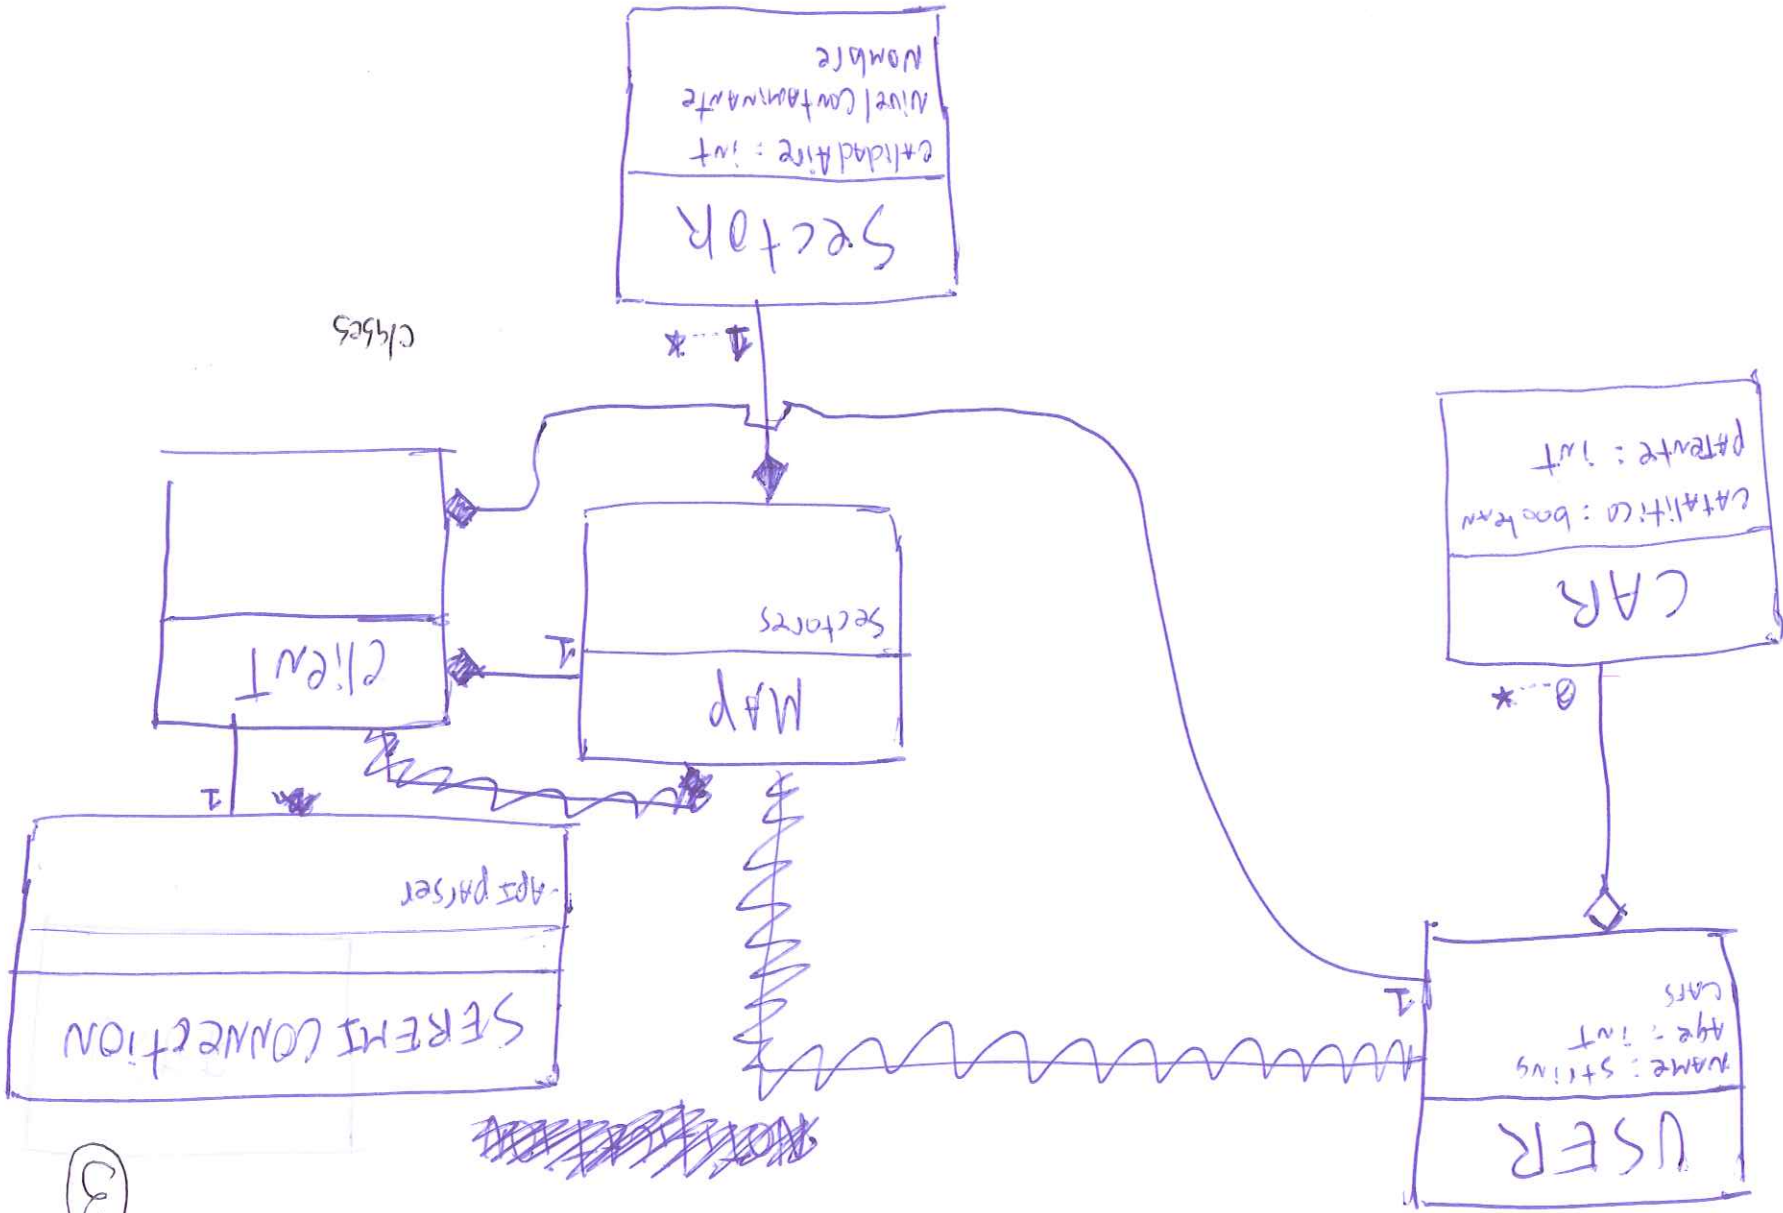 3
USER
NAME: string
Age: int
cars
1
SEREMI CONNECTION
-API parser
1
MAP
sectores
1
CLIENT
0...*
CAR
CATALITICO: boolean
PATENTE: int
1...*
SECTOR
CALIDADAIRE: int
Nivel CONTAMINANTE
Nombre
clases